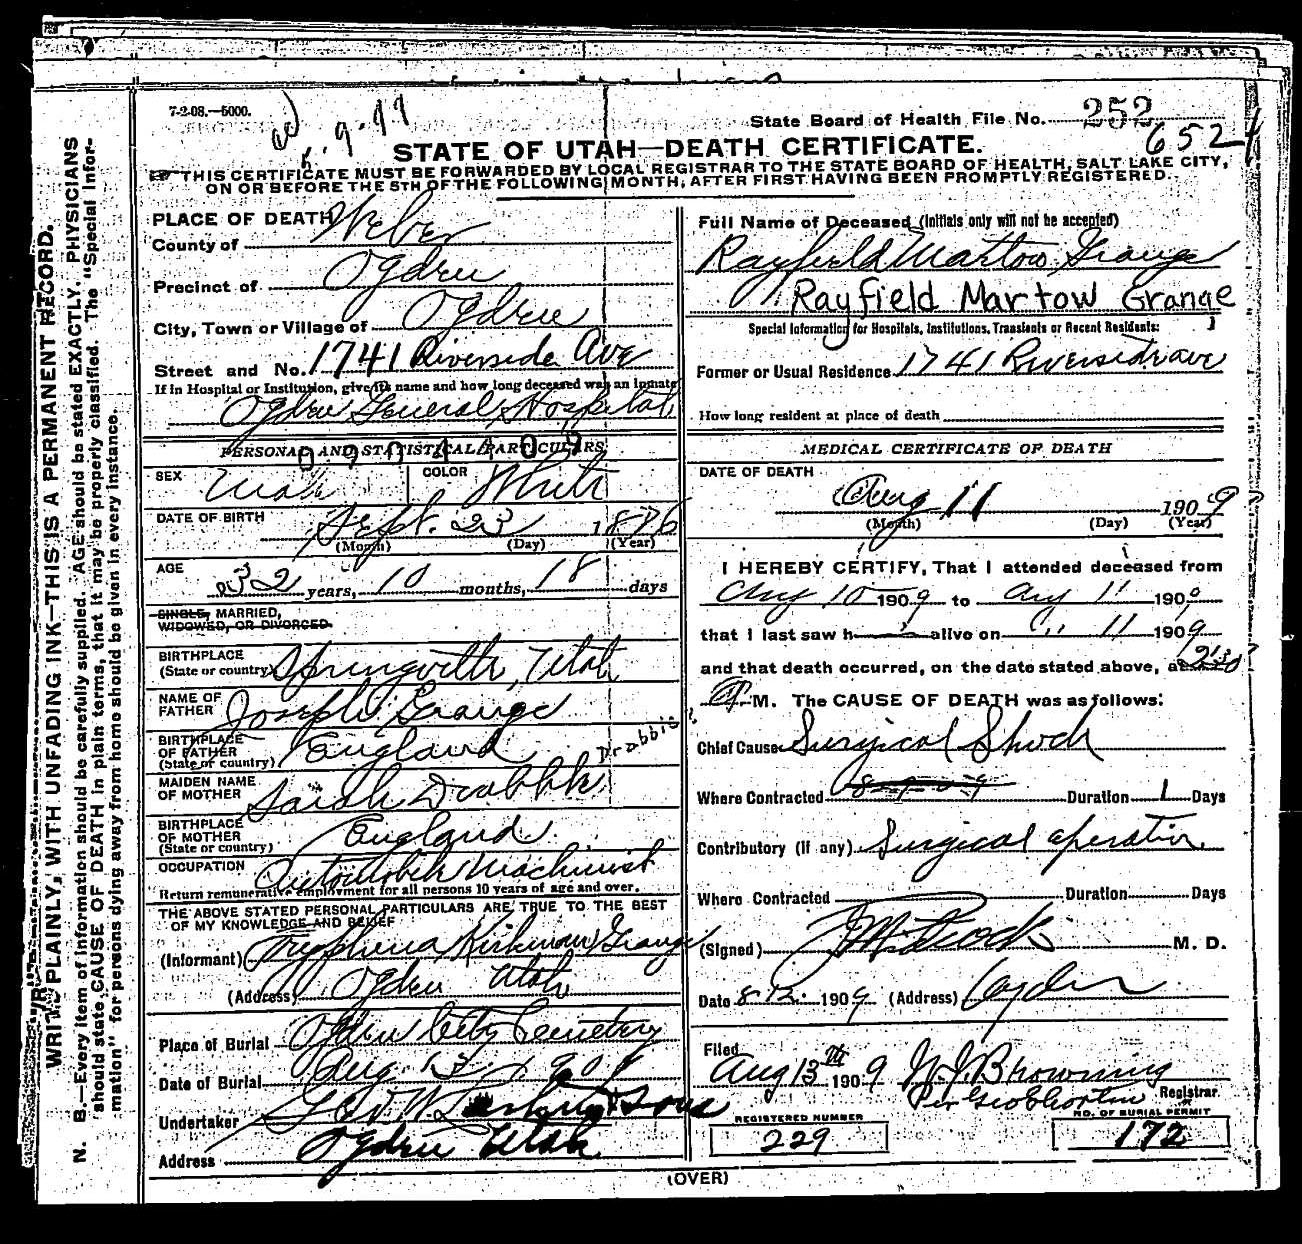 7-2-08.—5000.
State Board of Health File No. 252
652
STATE OF UTAH—DEATH CERTIFICATE.
THIS CERTIFICATE MUST BE FORWARDED BY LOCAL REGISTRAR TO THE STATE BOARD OF HEALTH, SALT LAKE CITY,
ON OR BEFORE THE 5TH OF THE FOLLOWING MONTH, AFTER FIRST HAVING BEEN PROMPTLY REGISTERED.
WRITE PLAINLY, WITH UNFADING INK—THIS IS A PERMANENT RECORD.
N. B.—Every item of information should be carefully supplied. AGE should be stated EXACTLY. PHYSICIANS
should state CAUSE OF DEATH in plain terms, that it may be properly classified. The "Special Infor-
mation" for persons dying away from home should be given in every instance.
PLACE OF DEATH
County of Weber
Precinct of Ogden
City, Town or Village of Ogden
Street and No. 1741 Riverside Ave
If in Hospital or Institution, give its name and how long deceased was an inmate
Ogden General Hospital
PERSONAL AND STATISTICAL PARTICULARS
SEX Male COLOR White
DATE OF BIRTH Sept. 23 1876
(Month) (Day) (Year)
AGE 32 years, 10 months, 18 days
SINGLE, MARRIED,
WIDOWED, OR DIVORCED
BIRTHPLACE
(State or country) Springville, Utah
NAME OF
FATHER Joseph Grange
BIRTHPLACE
OF FATHER
(State or country) England
MAIDEN NAME
OF MOTHER Sarah Drabble
BIRTHPLACE
OF MOTHER
(State or country) England
OCCUPATION Automobile Machinist
Return remunerative employment for all persons 10 years of age and over.
THE ABOVE STATED PERSONAL PARTICULARS ARE TRUE TO THE BEST
OF MY KNOWLEDGE AND BELIEF
(Informant) Tryphena Kirkman Grange
(Address) Ogden Utah
Place of Burial Ogden City Cemetery
Date of Burial Aug. 13, 1909
Undertaker & Sons
Address Ogden Utah
Full Name of Deceased (Initials only will not be accepted)
Rayfield Martow Grange
Rayfield Martow Grange
Special Information for Hospitals, Institutions, Transients or Recent Residents:
Former or Usual Residence 1741 Riverside ave
How long resident at place of death
MEDICAL CERTIFICATE OF DEATH
DATE OF DEATH
Aug 11 1909
(Month) (Day) (Year)
I HEREBY CERTIFY, That I attended deceased from
Aug 10 1909 to Aug 11 1909
that I last saw h alive on " 11 1909
and that death occurred, on the date stated above, at 2:30
M. The CAUSE OF DEATH was as follows:
Chief Cause Surgical Shock
Where Contracted Duration 1 Days
Contributory (if any) Surgical operation.
Where Contracted Duration Days
(Signed) M. D.
Date 8-12- 1909 (Address) Ogden
Filed
Aug 13th 1909 Browning
Registrar
REGISTERED NUMBER
229
NO. OF BURIAL PERMIT
172
(OVER)